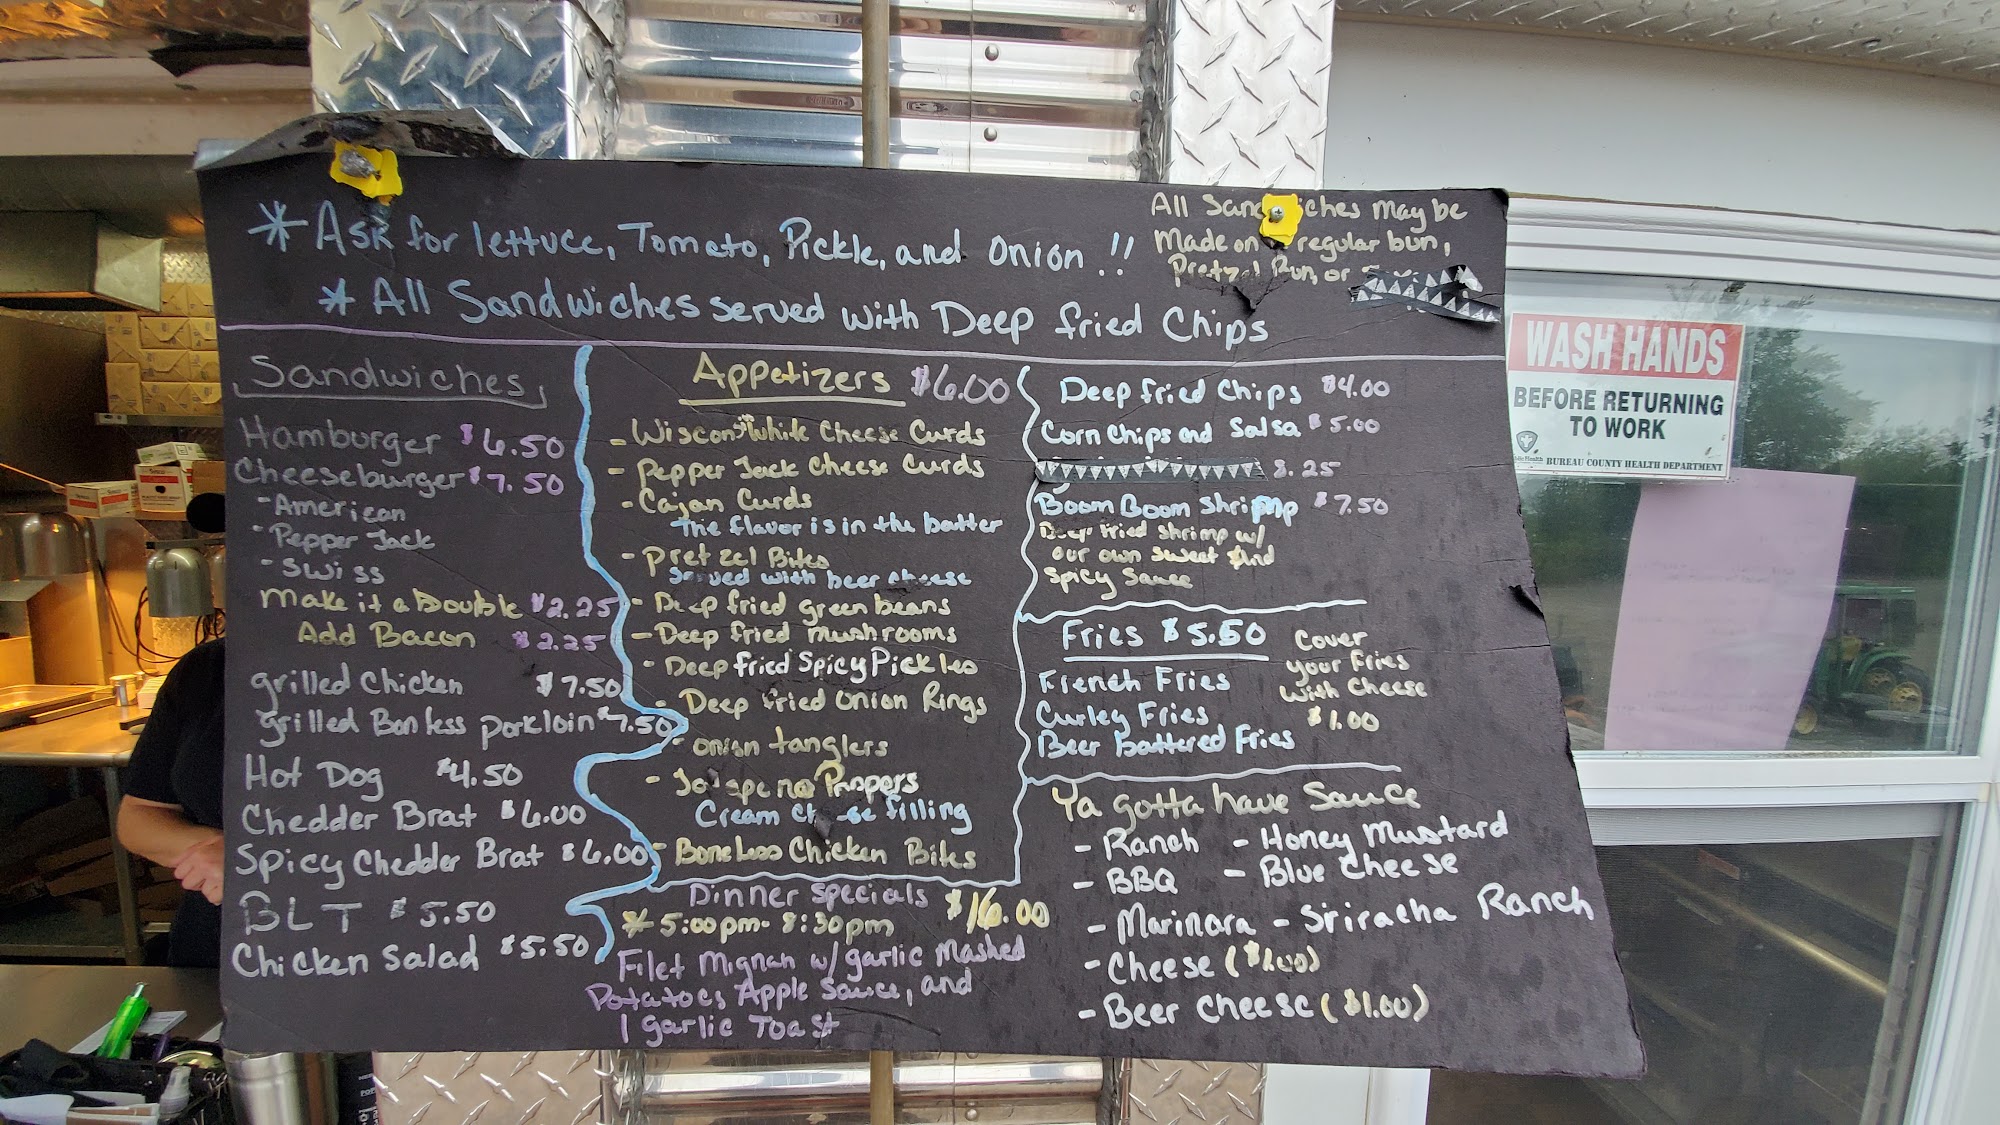 * Ask for lettuce, Tomato, Pickle, and Onion !!
* All Sandwiches served with Deep fried Chips
All Sandwiches may be
Made on regular bun,
Pretzel Bun, or
Sandwiches
Hamburger $6.50
Cheeseburger $7.50
- American
- Pepper Jack
- Swiss
Make it a Double $2.25
Add Bacon $2.25
grilled Chicken $7.50
grilled Bonless porkloin $7.50
Hot Dog $4.50
Chedder Brat $6.00
Spicy Chedder Brat $6.00
BLT $5.50
Chicken Salad $5.50
Appetizers $6.00
- Wisconsin White Cheese Curds
- Pepper Jack Cheese Curds
- Cajan Curds
The flavor is in the batter
- Pretzel Bites
Served with beer cheese
- Deep fried green beans
- Deep fried mushrooms
- Deep fried Spicy Pickles
- Deep fried Onion Rings
- onion tanglers
- Jalapeno Poppers
Cream cheese filling
- Boneless Chicken Bites
Dinner Specials $16.00
* 5:00pm - 8:30pm
Filet Mignan w/ garlic Mashed
Potatoes, Apple Sauce, and
1 garlic Toast
Deep fried Chips $4.00
Corn Chips and Salsa $5.00
8.25
Boom Boom Shrimp $7.50
Deep fried shrimp w/
our own sweet and
Spicy Sauce
Fries $5.50
French Fries
Curley Fries
Beer battered Fries
Cover
your Fries
with Cheese
$1.00
Ya gotta have Sauce
- Ranch - Honey Mustard
- BBQ - Blue Cheese
- Marinara - Sriracha Ranch
- Cheese ($1.00)
- Beer Cheese ($1.00)
WASH HANDS
BEFORE RETURNING
TO WORK
BUREAU COUNTY HEALTH DEPARTMENT